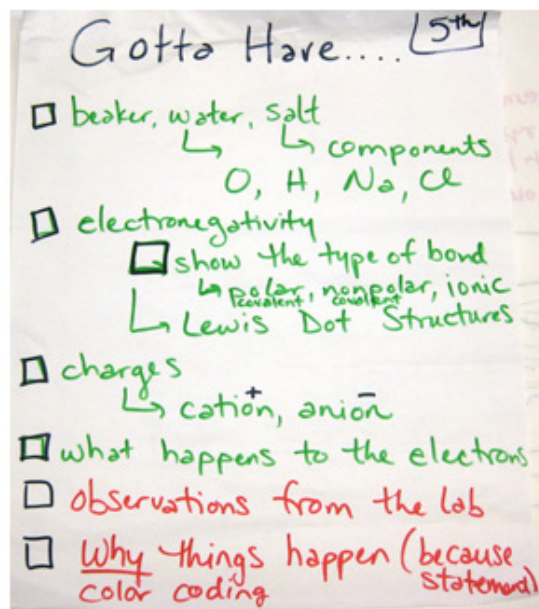 Gotta Have.... 5th
beaker, water, salt
components
O, H, Na, Cl
electronegativity
show the type of bond
polar, nonpolar, ionic
covalent covalent
Lewis Dot Structures
charges
cation, anion
+ −
what happens to the electrons
observations from the lab
Why things happen (because
color coding statement)